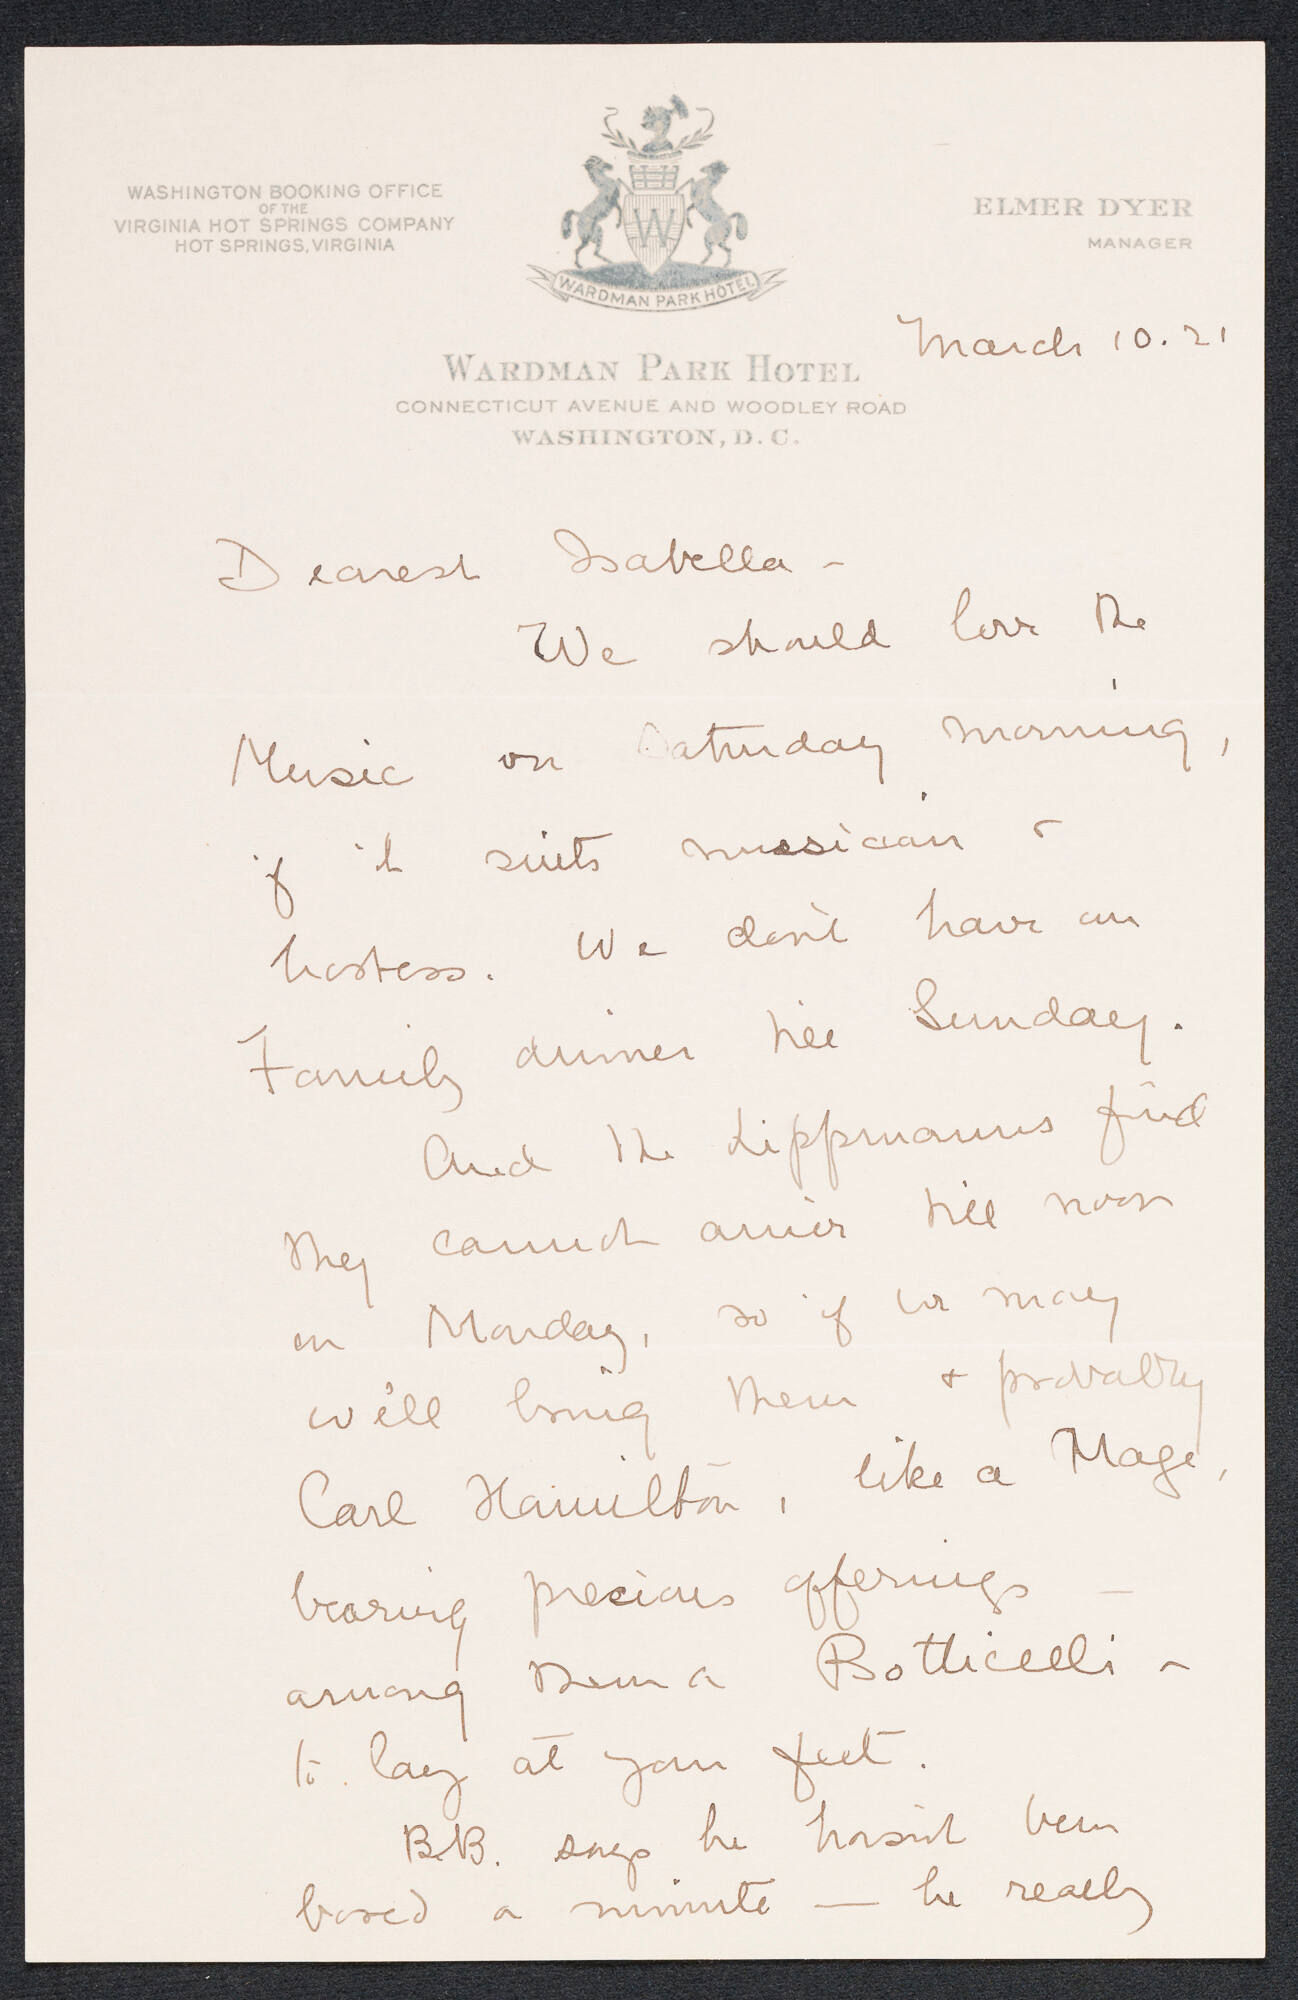 WASHINGTON BOOKING OFFICE
OF THE
VIRGINIA HOT SPRINGS COMPANY
HOT SPRINGS, VIRGINIA
W
WARDMAN PARK HOTEL
ELMER DYER
MANAGER
WARDMAN PARK HOTEL
CONNECTICUT AVENUE AND WOODLEY ROAD
WASHINGTON, D. C.
March 10. 21
Dearest Isabella -
We should love the
Music on Saturday morning,
if it suits musician &
hostess. We don't have our
Family dinner till Sunday.
And the Lippmanns find
they cannot arrive till noon
on Monday, so if we may
we'll bring them & probably
Carl Hamilton, like a Mage,
bearing precious offerings —
among them a Botticelli -
to lay at your feet.
B.B. says he hasn't been
bored a minute — he really